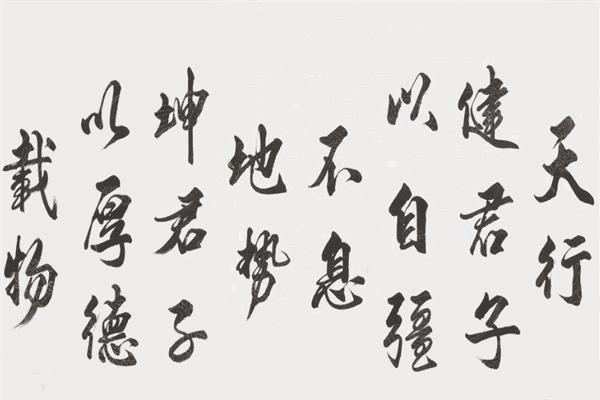 天行
健君子
以自彊
不息
地势
坤君子
以厚德
載物